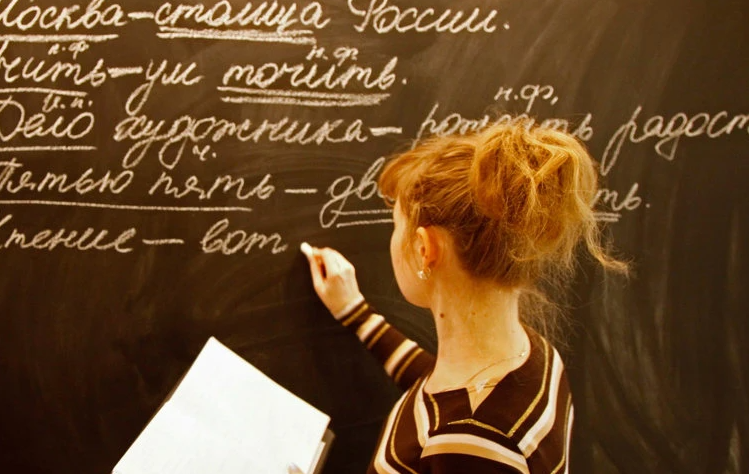 Москва – столица России.
н.ф. н.ф.
чить – ум точить.
и.п. н.ф.
Дело художника – радост
ч.
Пятью пять – дв ть.
тение – вот